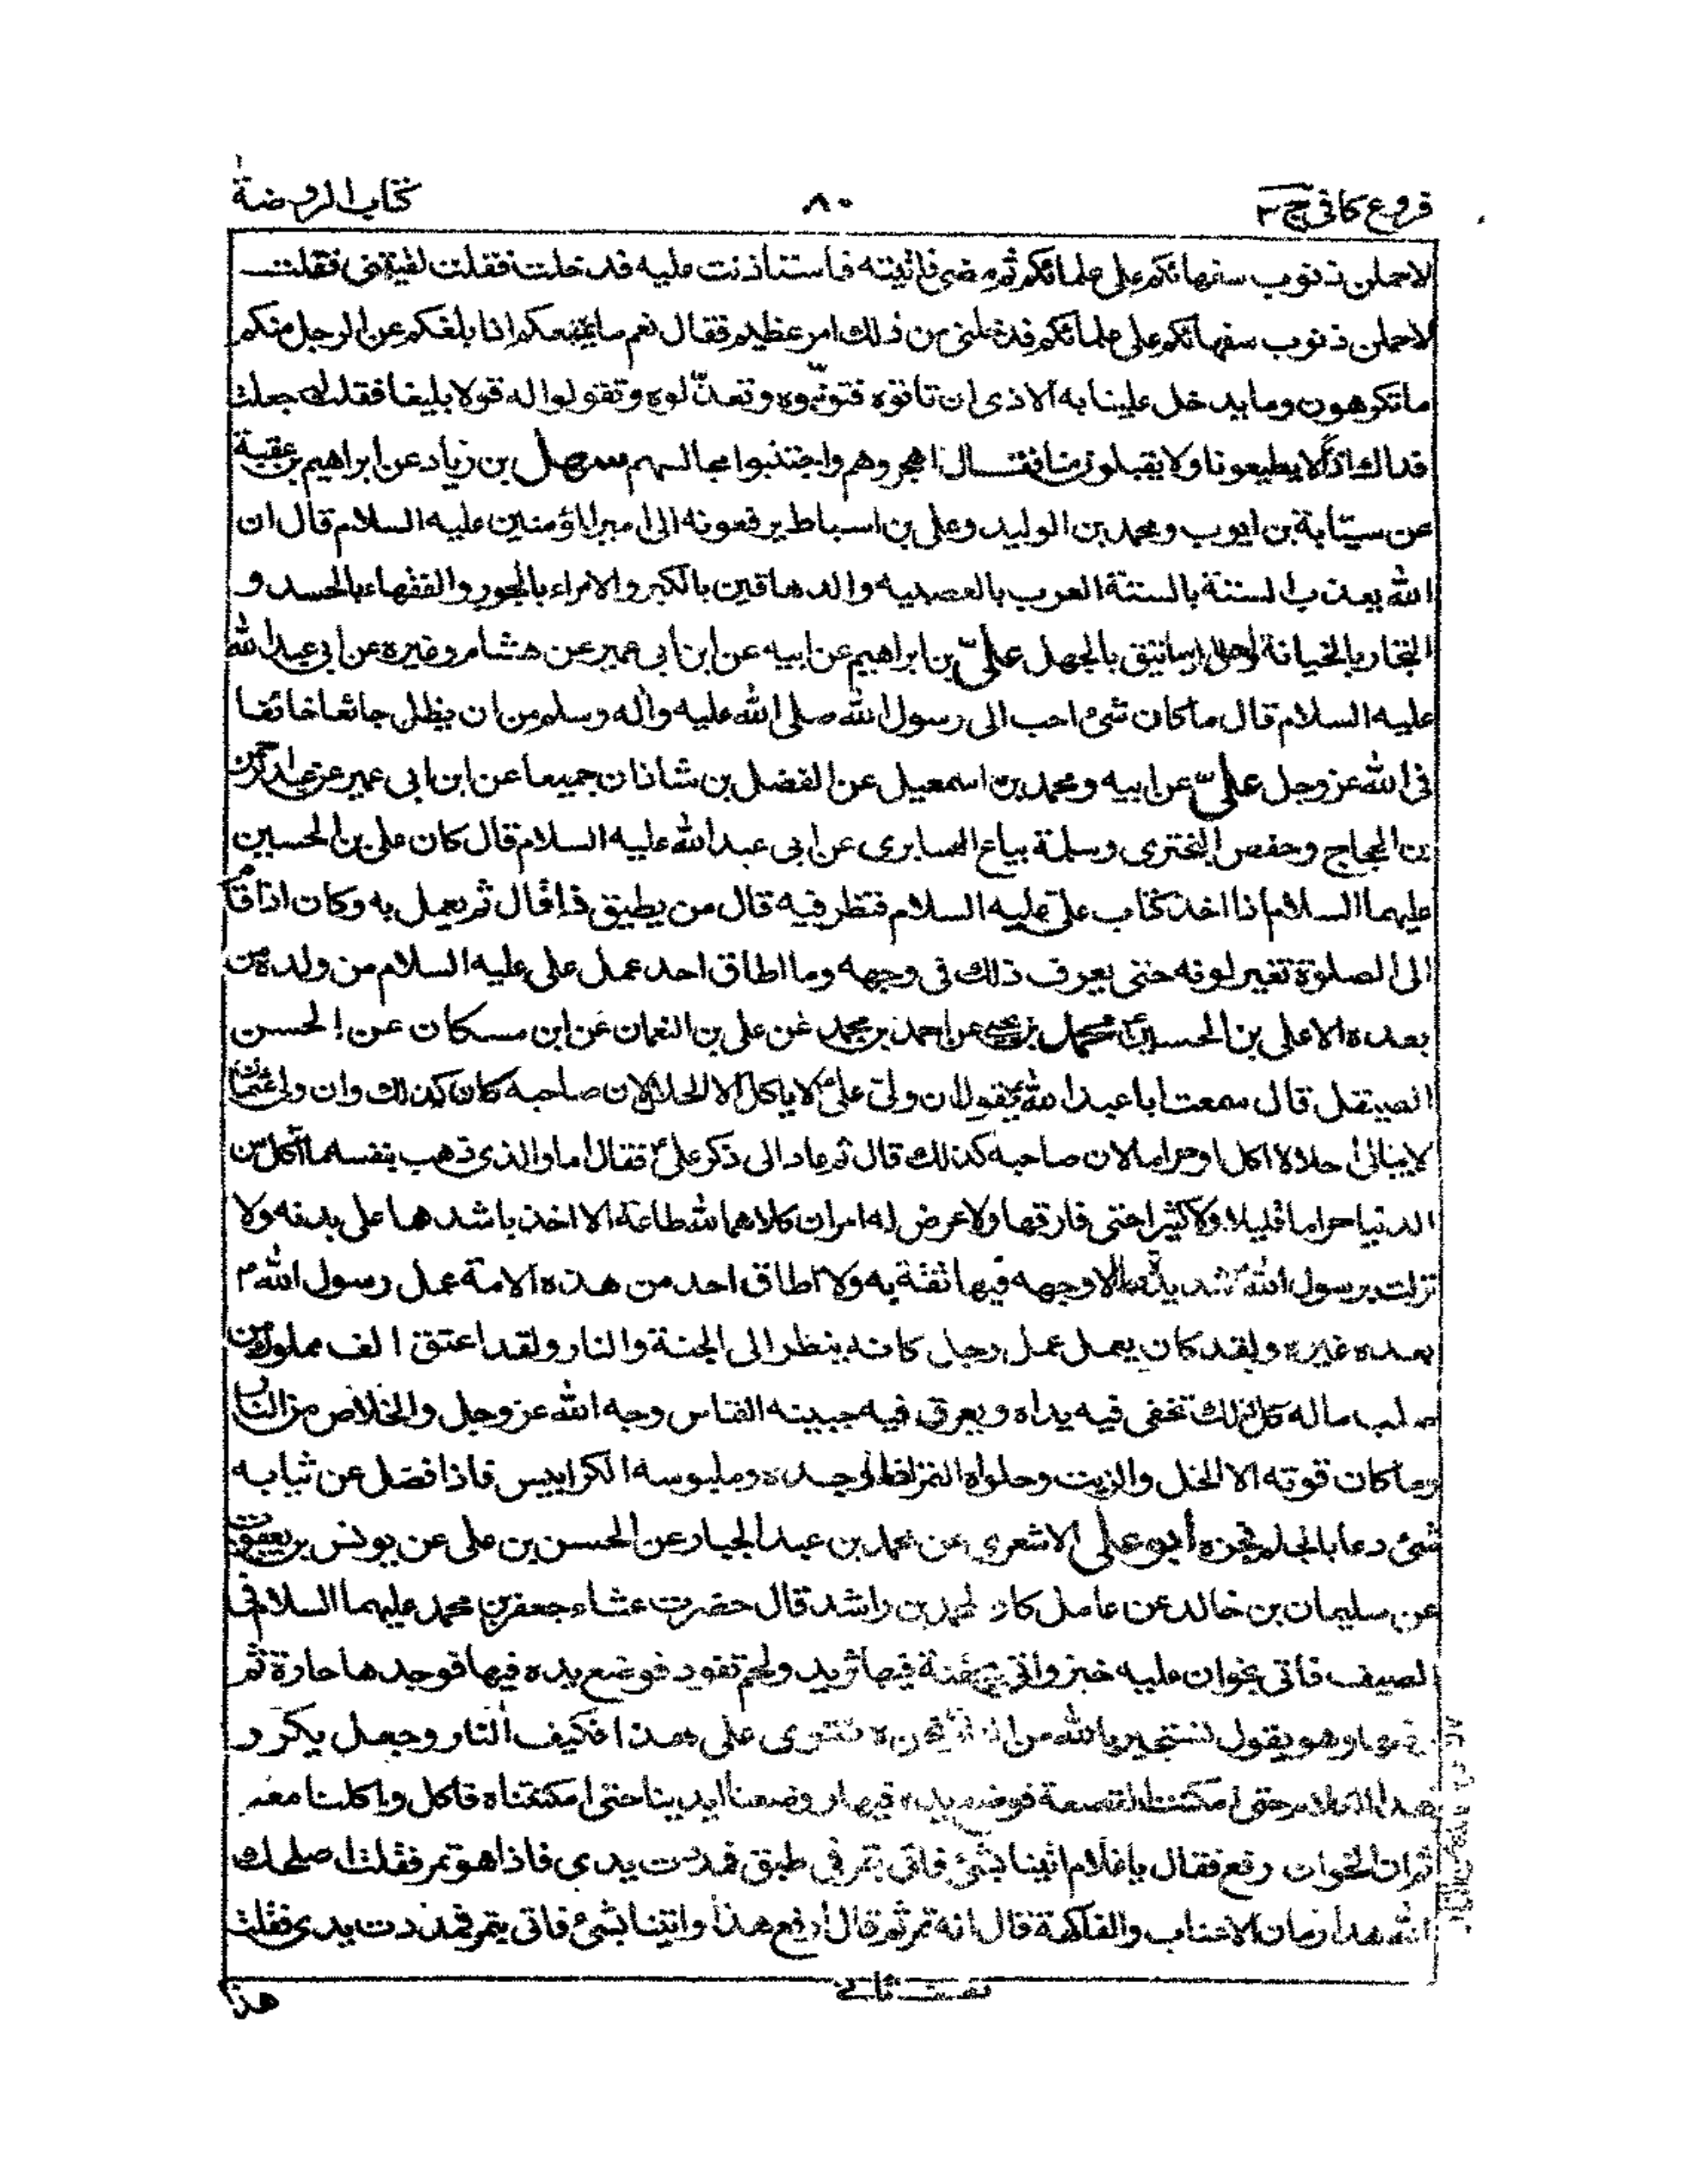 فروع كافى ج٣
٨٠
كتاب الروضة
لاحملن ذنوب سفهائكم على علمائكم ثم مضى فاتيته فاستاذنت عليه فدخلت فقلت لقيتنى فقلت
لاحملن ذنوب سفهائكم على علمائكم فدخلنى من ذلك امر عظيم فقال نعم ما يمنعكم اذا بلغكم عن الرجل منكم
ما تكرهون وما يدخل علينا به الاذى ان تاتوه فتونّبوه وتعذّلوه وتقولوا له قولا بليغا فقلت جعلت
فداك اذاً لا يطيعونا ولا يقبلون منا فقال اهجروهم واجتنبوا مجالسهم سهل بن زياد عن ابراهيم بن عقبة
عن سيّابة بن ايوب ومحمد بن الوليد وعلى بن اسباط يرفعونه الى امير المؤمنين عليه السلام قال ان
الله يعذب الستة بالستة العرب بالعصبيه والدهاقين بالكبر والامراء بالجور والفقهاء بالحسد و
التجار بالخيانة واهل الرساتيق بالجهل علىّ بن ابراهيم عن ابيه عن ابن ابى عمير عن هشام وغيره عن ابى عبد الله
عليه السلام قال ما كان شئ احب الى رسول الله صلى الله عليه وآله وسلم من ان يظل جائعا خائفا
فى الله عز وجل علىّ عن ابيه ومحمد بن اسمعيل عن الفضل بن شاذان جميعا عن ابن ابى عمير عن عبد الرحمن
بن الحجاج وحفص البخترى وسلمة بياع السابرى عن ابى عبد الله عليه السلام قال كان على بن الحسين
عليهما السلام اذا اخذ كتاب على عليه السلام فنظر فيه قال من يطيق ذا قال ثم يعمل به وكان اذا قام
الى الصلوة تغير لونه حتى يعرف ذلك فى وجهه وما اطاق احد عمل على عليه السلام من ولده من
بعده الا على بن الحسين محمد بن يحيى عن احمد بن محمد عن على بن النعمان عن ابن مسكان عن الحسن
الصيقل قال سمعت ابا عبد الله يقول ان ولى على لا ياكل الا الحلال لان صاحبه كان كذلك وان ولى عثمان
لا يبالى احلالا اكل او حراما لان صاحبه كذلك قال ثم عاد الى ذكر على فقال اما والذى ذهب بنفسه ما اكل من
الدنيا حراما قليلا ولا كثيرا حتى فارقها ولا عرض له امران كلاهما لله طاعة الا اخذ باشدهما على بدنه ولا
نزلت برسول الله شديدة الا وجهه فيها ثقة به ولا اطاق احد من هذه الامة عمل رسول الله
بعده غيره ولقد كان يعمل عمل رجل كانه ينظر الى الجنة والنار ولقد اعتق الف مملوك من
صلب ماله كل ذلك تحفى فيه يداه ويعرق فيه جبينه التماس وجه الله عز وجل والخلاص من النار
وما كان قوته الا الخل والزيت وحلواه التمر اذا وجده وملبوسه الكرابيس فاذا فضل عن ثيابه
شئ دعا بالجلم فجزه أبو على الاشعرى عن محمد بن عبد الجبار عن الحسن بن على عن يونس بن يعقوب
عن سليمان بن خالد عن عامل كان لمحمد بن راشد قال حضرت عشاء جعفر بن محمد عليهما السلام فى
الصيف فاتى بخوان عليه خبز واتى بجفنة فيها ثريد ولحم تفور فوضع يده فيها فوجدها حارة ثم
رفعها وهو يقول نستجير بالله من النار نحن لا نقوى على هذا فكيف النار وجعل يكرر
هذا الكلام حتى امكنت القصعة فوضع يده فيها ووضعنا ايدينا حتى امكنتناه فاكل واكلنا معه
ثم ان الخوان رفع فقال يا غلام ائتنا بشئ فاتى بتمر فى طبق فمددت يدى فاذا هو تمر فقلت اصلحك
الله هذا زمان الاعناب والفاكهة قال انه تمر ثم قال ارفع هذا وائتنا بشئ فاتى بتمر فمددت يدى فقلت
هذا